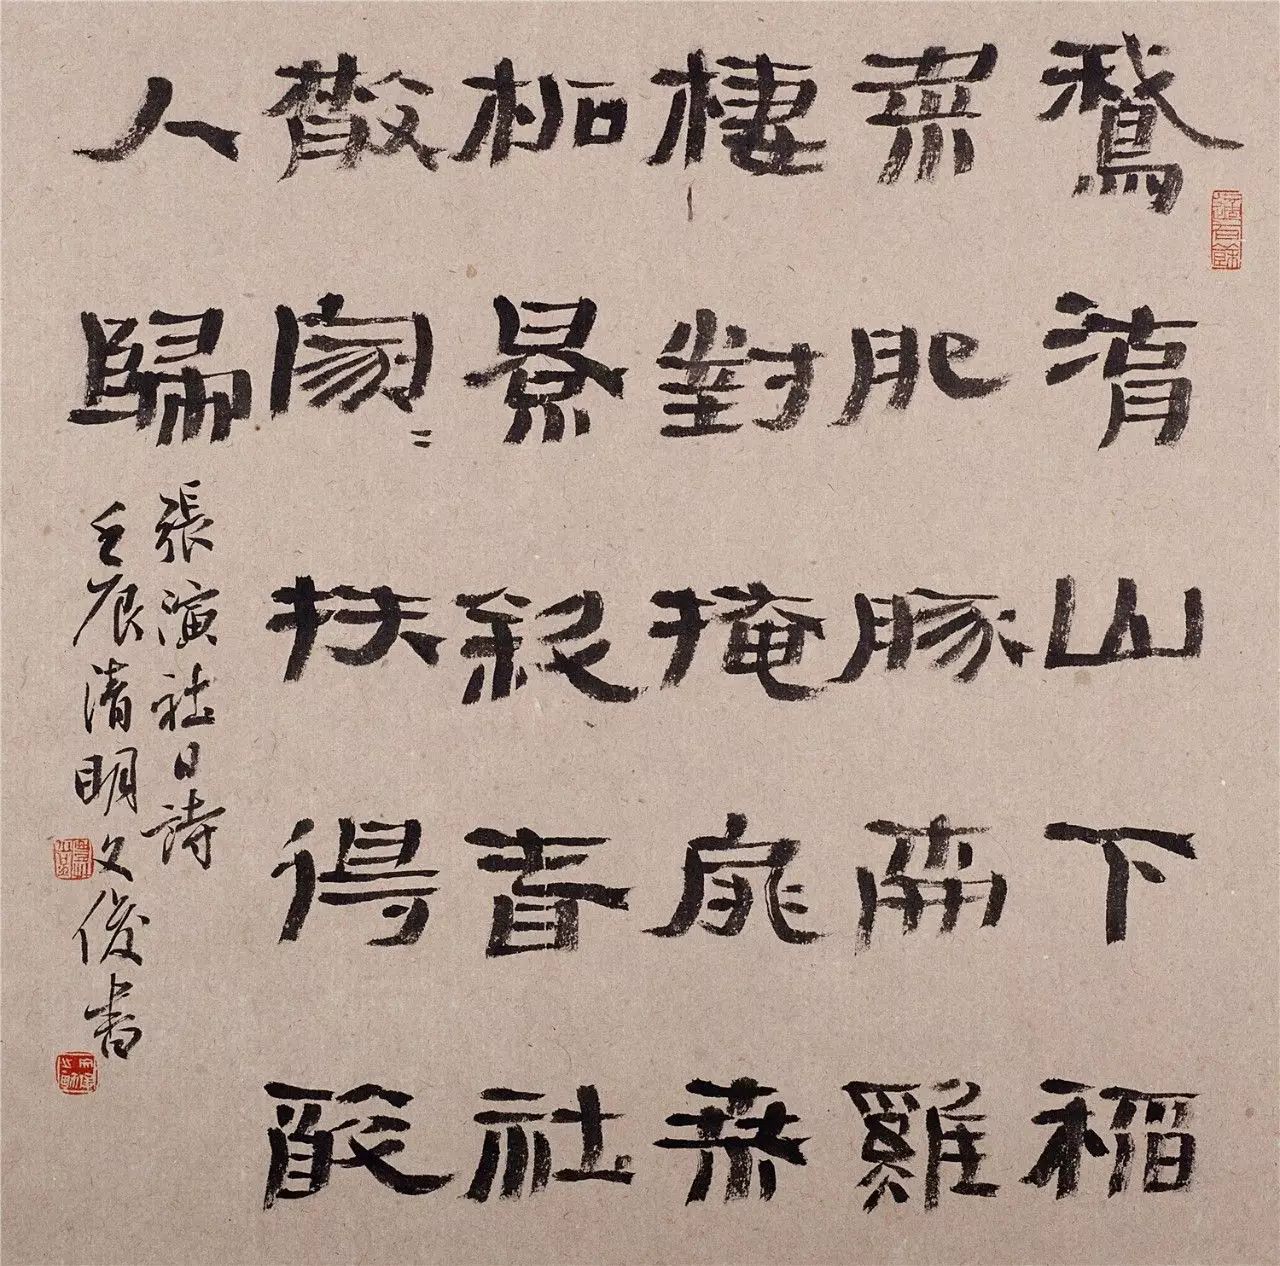 鵞湖山下稻
粱肥豚穽雞
棲對掩扉桒
柘景斜春社
散家〻扶得醉
人歸
張演社日詩
壬辰清明文俊書